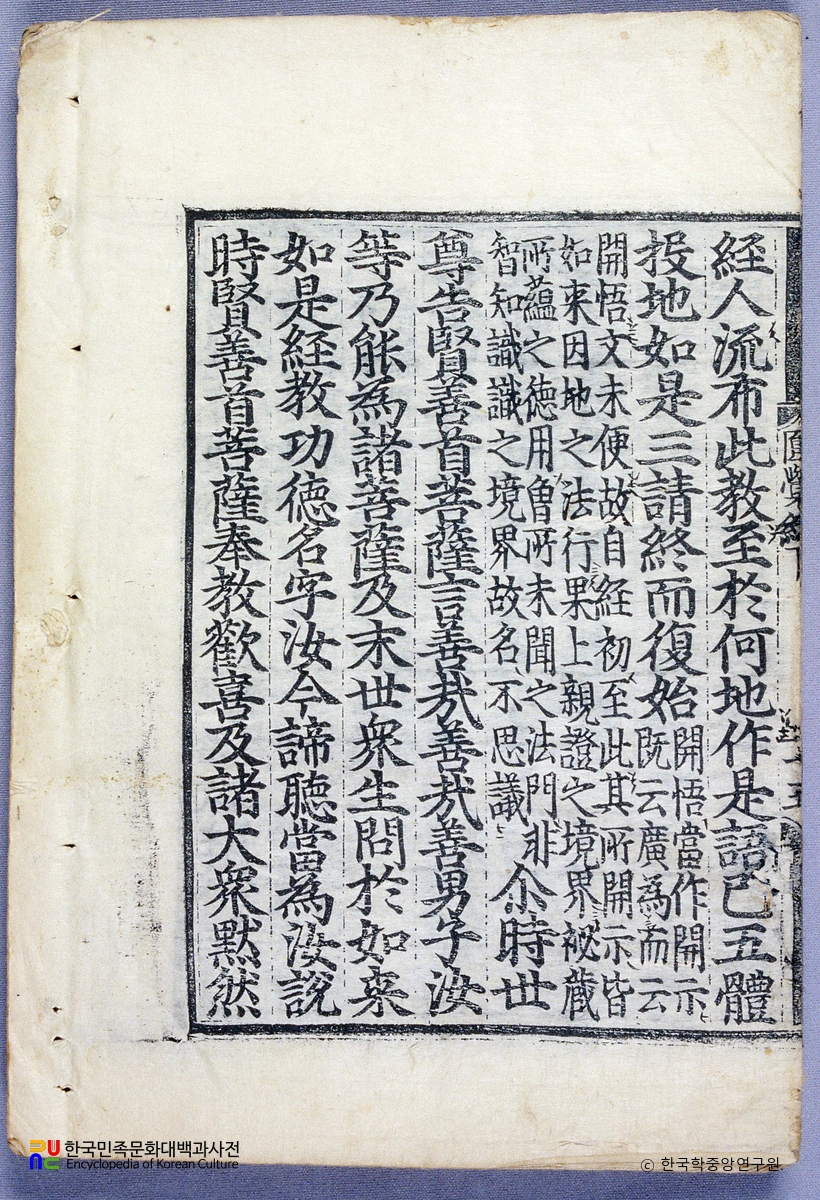 経人流布此教至於何地作是語已五體
投地如是三請終而復始
開悟當作開示
既云廣為而云
開悟文未便故自経初至此其所開示皆
如来因地之法行果上親證之境界祕藏
所蘊之徳用曾所未聞之法門非
智知識識之境界故名不思議
尒時世
尊告賢善首菩薩言善㢤善㢤善男子汝
等乃能為諸菩薩及末世衆生問於如来
如是経教功徳名字汝今諦聽當為汝説
時賢善首菩薩奉教歡喜及諸大衆黙然
한국민족문화대백과사전
Encyclopedia of Korean Culture
© 한국학중앙연구원